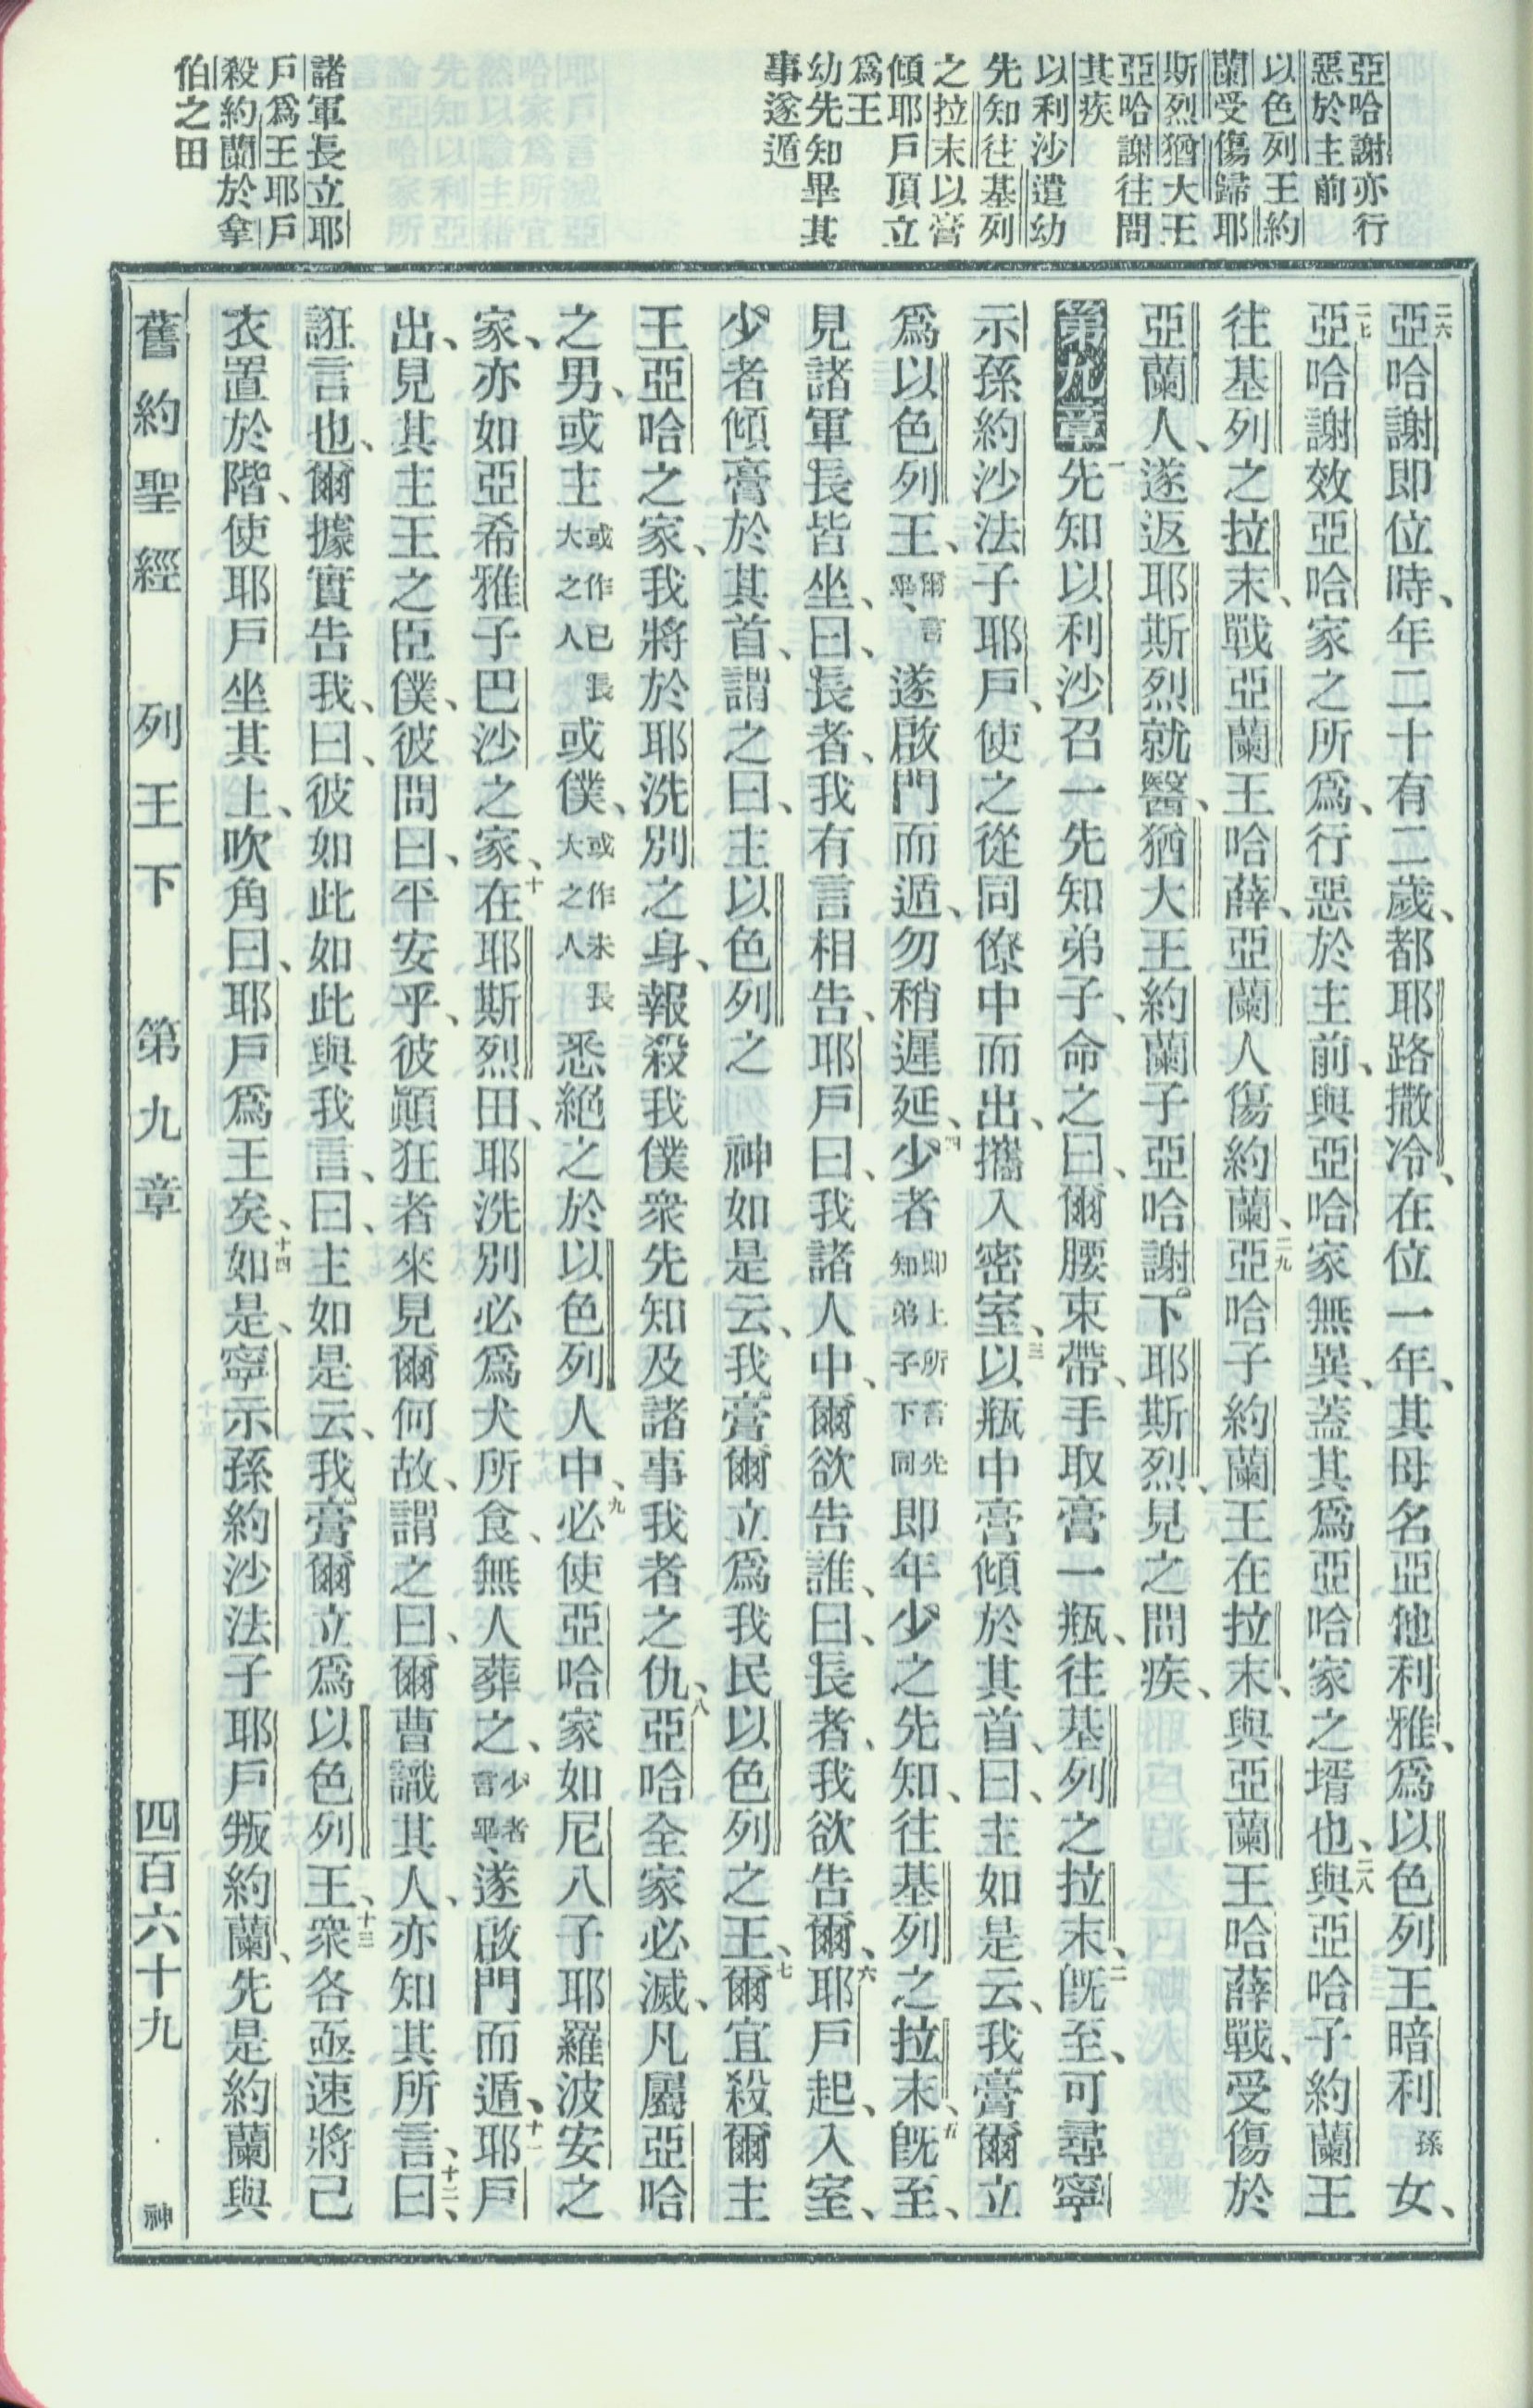 亞哈謝亦行
惡於主前
以色列王約
蘭受傷歸耶
斯烈猶大王
亞哈謝往問
其疾
以利沙遣幼
先知往基列
之拉末以膏
傾耶戶頂立
爲王
幼先知畢其
事遂遁
諸軍長立耶
戶爲王耶戶
殺約蘭於拿
伯之田
二六亞哈謝即位時、年二十有二歲、都耶路撒冷、在位一年、其母名亞他利雅、爲以色列王暗利孫女、
二七亞哈謝效亞哈家之所爲、行惡於主前、與亞哈家無異、蓋其爲亞哈家之壻也、二八與亞哈子約蘭王
往基列之拉末、戰亞蘭王哈薛、亞蘭人傷約蘭、二九亞哈子約蘭王在拉末、與亞蘭王哈薛戰、受傷於
亞蘭人、遂返耶斯烈就醫、猶大王約蘭子亞哈謝下耶斯烈、見之問疾、
第九章一先知以利沙召一先知弟子、命之曰、爾腰束帶、手取膏一瓶、往基列之拉末、二旣至、可尋寧
示孫約沙法子耶戶、使之從同僚中而出、攜入密室、三以瓶中膏傾於其首、曰、主如是云、我膏爾立
爲以色列王、爾言畢、遂啟門而遁、勿稍遲延、四少者卽上所言先知弟子下同即年少之先知、往基列之拉末、五旣至、
見諸軍長皆坐、曰、長者、我有言相告、耶戶曰、我諸人中、爾欲告誰、曰、長者、我欲告爾、六耶戶起、入室、
少者傾膏於其首、謂之曰、主以色列之 神如是云、我膏爾立爲我民以色列之王、七爾宜殺爾主
王亞哈之家、我將於耶洗別之身、報殺我僕衆先知及諸事我者之仇、八亞哈全家必滅、凡屬亞哈
之男、或主或作已長大之人或僕、或作未長大之人悉絕之於以色列人中、九必使亞哈家如尼八子耶羅波安之
家、亦如亞希雅子巴沙之家、十在耶斯烈田、耶洗別必爲犬所食、無人葬之、少者言畢、遂啟門而遁、十一耶戶
出、見其主王之臣僕、彼問曰、平安乎、彼顚狂者來見爾何故、謂之曰、爾曹識其人、亦知其所言、十二曰、
誑言也、爾據實告我、曰、彼如此如此與我言、曰、主如是云、我膏爾立爲以色列王、十三衆各亟速將己
衣置於階、使耶戶坐其上、吹角曰、耶戶爲王矣、十四如是、寧示孫約沙法子耶戶叛約蘭、先是約蘭與
舊約聖經 列王下 第九章 四百六十九 神